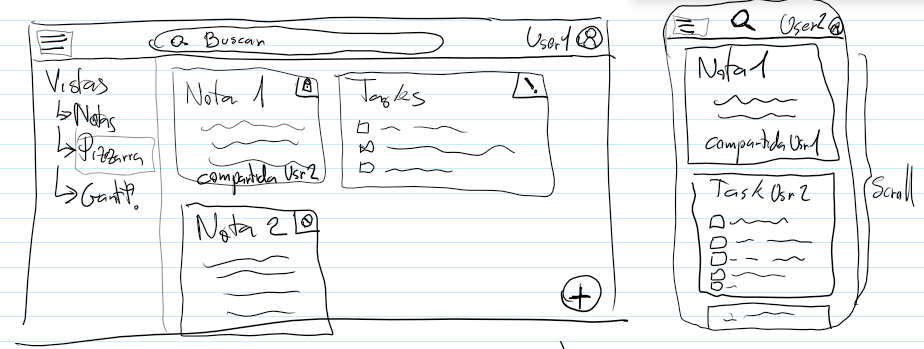 Buscar
User1
Vistas
Notas
Pizzarra
Gantt?
Nota 1
compartida Usr2
Tasks
!
Nota 2
User2
Nota 1
compartida Usr1
Task Usr2
Scroll